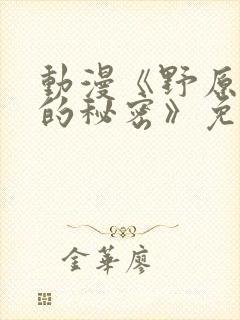 動漫《野原
的秘密》免
金華廖